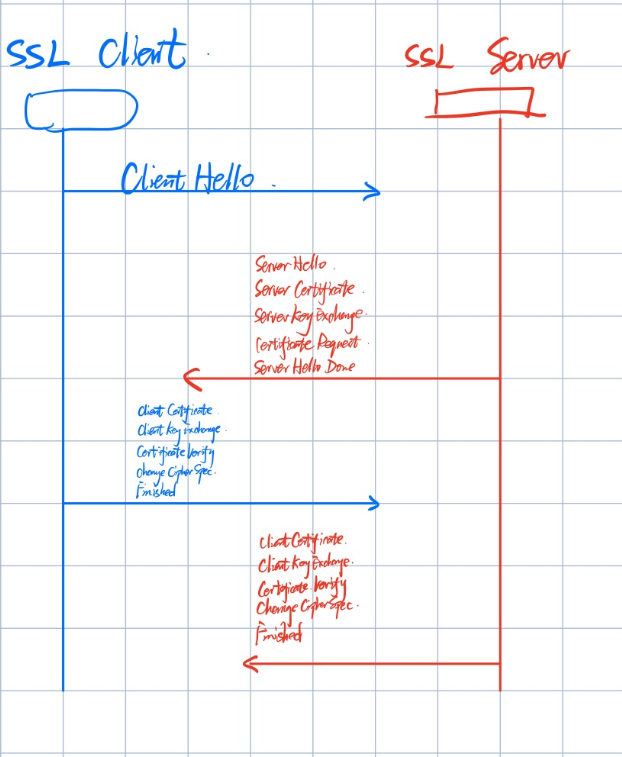 SSL Client
SSL Server
Client Hello
Server Hello
Server Certificate
Server Key Exchange
Certificate Request
Server Hello Done
Client Certificate
Client Key Exchange
Certificate Verify
Change Cipher Spec
Finished
Client Certificate
Client Key Exchange
Certificate Verify
Change Cipher Spec
Finished